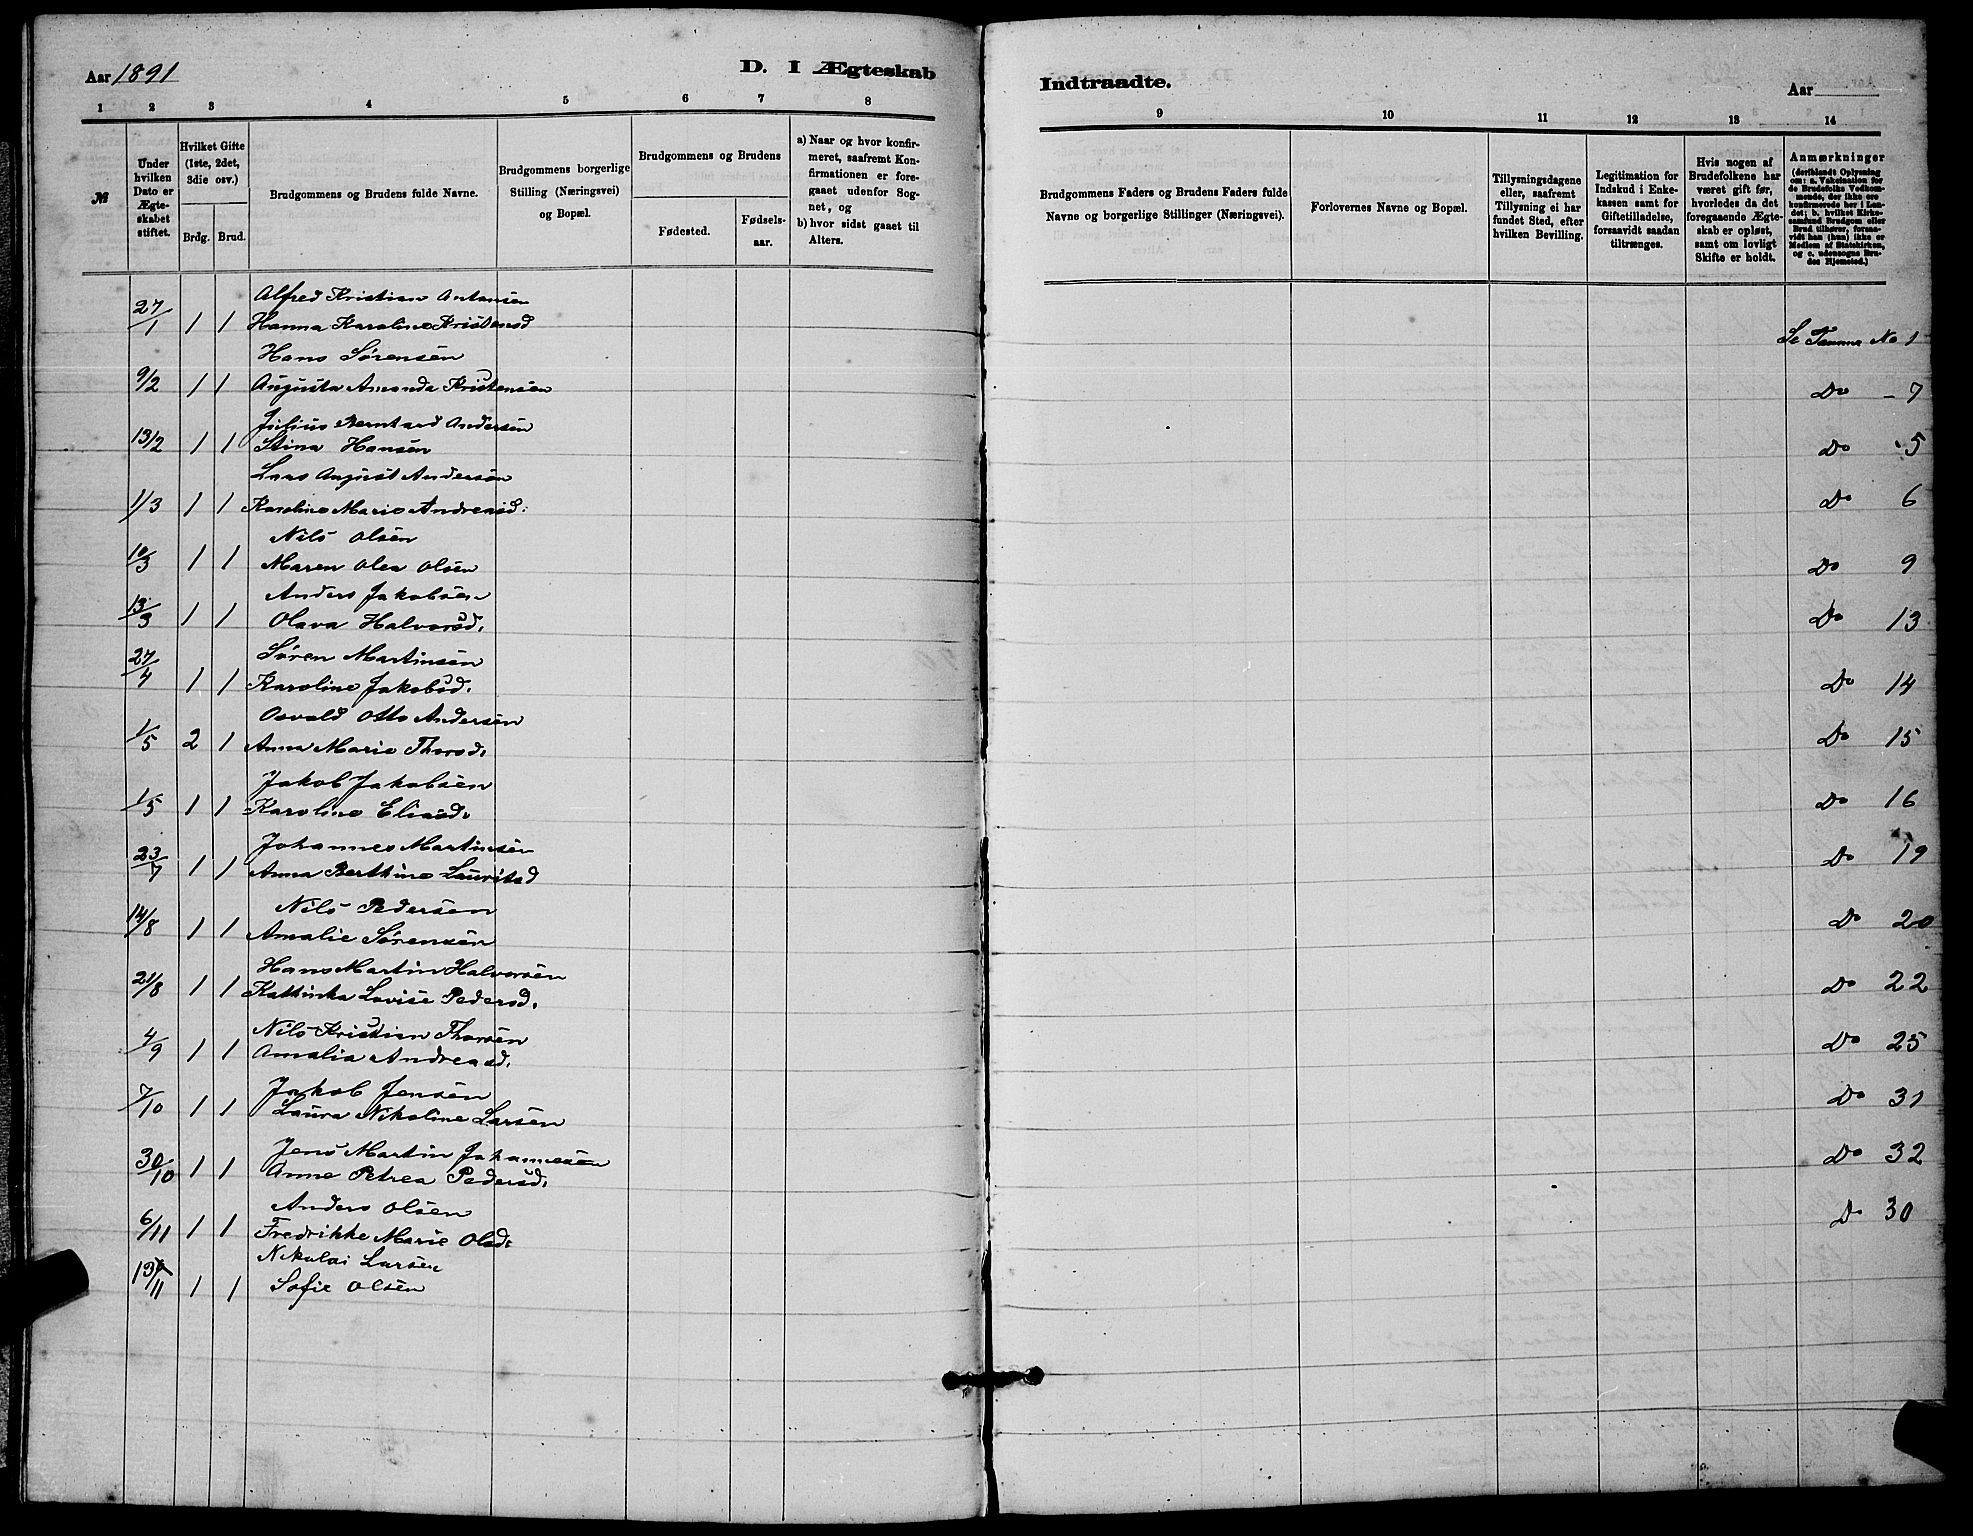 Aar 1891
D. I Ægteskab
Indtraadte.
Aar
1 2 3 4 5 6 7 8
9 10 11 12 13 14
№
Under hvilken Dato er Ægteskabet stiftet.
Hvilket Gifte (1ste, 2det, 3die osv.)
Brdg. Brud.
Brudgommens og Brudens fulde Navne.
Brudgommens borgerlige Stilling (Næringsvei) og Bopæl.
Brudgommens og Brudens
Fødested.
Fødselsaar.
a) Naar og hvor konfirmeret, saafremt Konfirmationen er foregaaet udenfor Sognet, og
b) hvor sidst gaaet til Alters.
Brudgommens Faders og Brudens Faders fulde Navne og borgerlige Stillinger (Næringsvei).
Forlovernes Navne og Bopæl.
Tillysningsdagene eller, saafremt Tillysning ei har fundet Sted, efter hvilken Bevilling.
Legitimation for Indskud i Enkekassen samt for Giftetilladelse, forsaavidt saadan tiltrænges.
Hvis nogen af Brudefolkene har været gift før, hvorledes da det foregaaende Ægteskab er opløst, samt om lovligt Skifte er holdt.
Anmærkninger (deriblandt Oplysning om: a. Vakcination for de Brudefolks Vedkommende, der ikke ere konfirmerede her i Landet; b. hvilket Kirkesamfund Brudgom eller Brud tilhører, forsaavidt han (hun) ikke er Medlem af Statskirken, og c. udensogns Brudes Hjemsted.)
Alfred Kristian Antonsen
27/1 1 1 Hanna Karoline Kristensd Se Tamme No 1
Hans Sørensen
9/2 1 1 Augusta Amanda Kristensen Do - 7
Julius Berntard Andersen
13/2 1 1 Stina Hansen Do - 5
Lars August Andersen
1/3 1 1 Karoline Marie Andreasd: Do 6
Nils Olsen
10/3 1 1 Maren Olea Olsen Do 9
Anders Jakobsen
13/3 1 1 Olava Halvorsd. Do 13
Søren Martinsen
27/4 1 1 Karoline Jakobsd. Do 14
Osvald Otto Andersen
1/5 2 1 Anna Marie Thorsd. Do 15
Jakob Jakobsen
1/5 1 1 Karoline Eliasd. Do 16
Johannes Martinsen
23/7 1 1 Anna Berthine Lauritsd Do 19
Nils Pedersen
14/8 1 1 Amalie Sørensen Do 20
Hans Martin Halvorsen
21/8 1 1 Kathinka Lovise Pedersd. Do 22
Nils Kristian Thorsen
4/9 1 1 Amalia Andreasd. Do 25
Jakob Jensen
7/10 1 1 Laura Nikoline Larsen Do 31
Jens Martin Johannesen
30/10 1 1 Anne Petrea Pedersd. Do 32
Anders Olsen
6/11 1 1 Fredrikke Marie Olsd: Do 30
Nikolai Larsen
13/11 1 1 Sofie Olsen